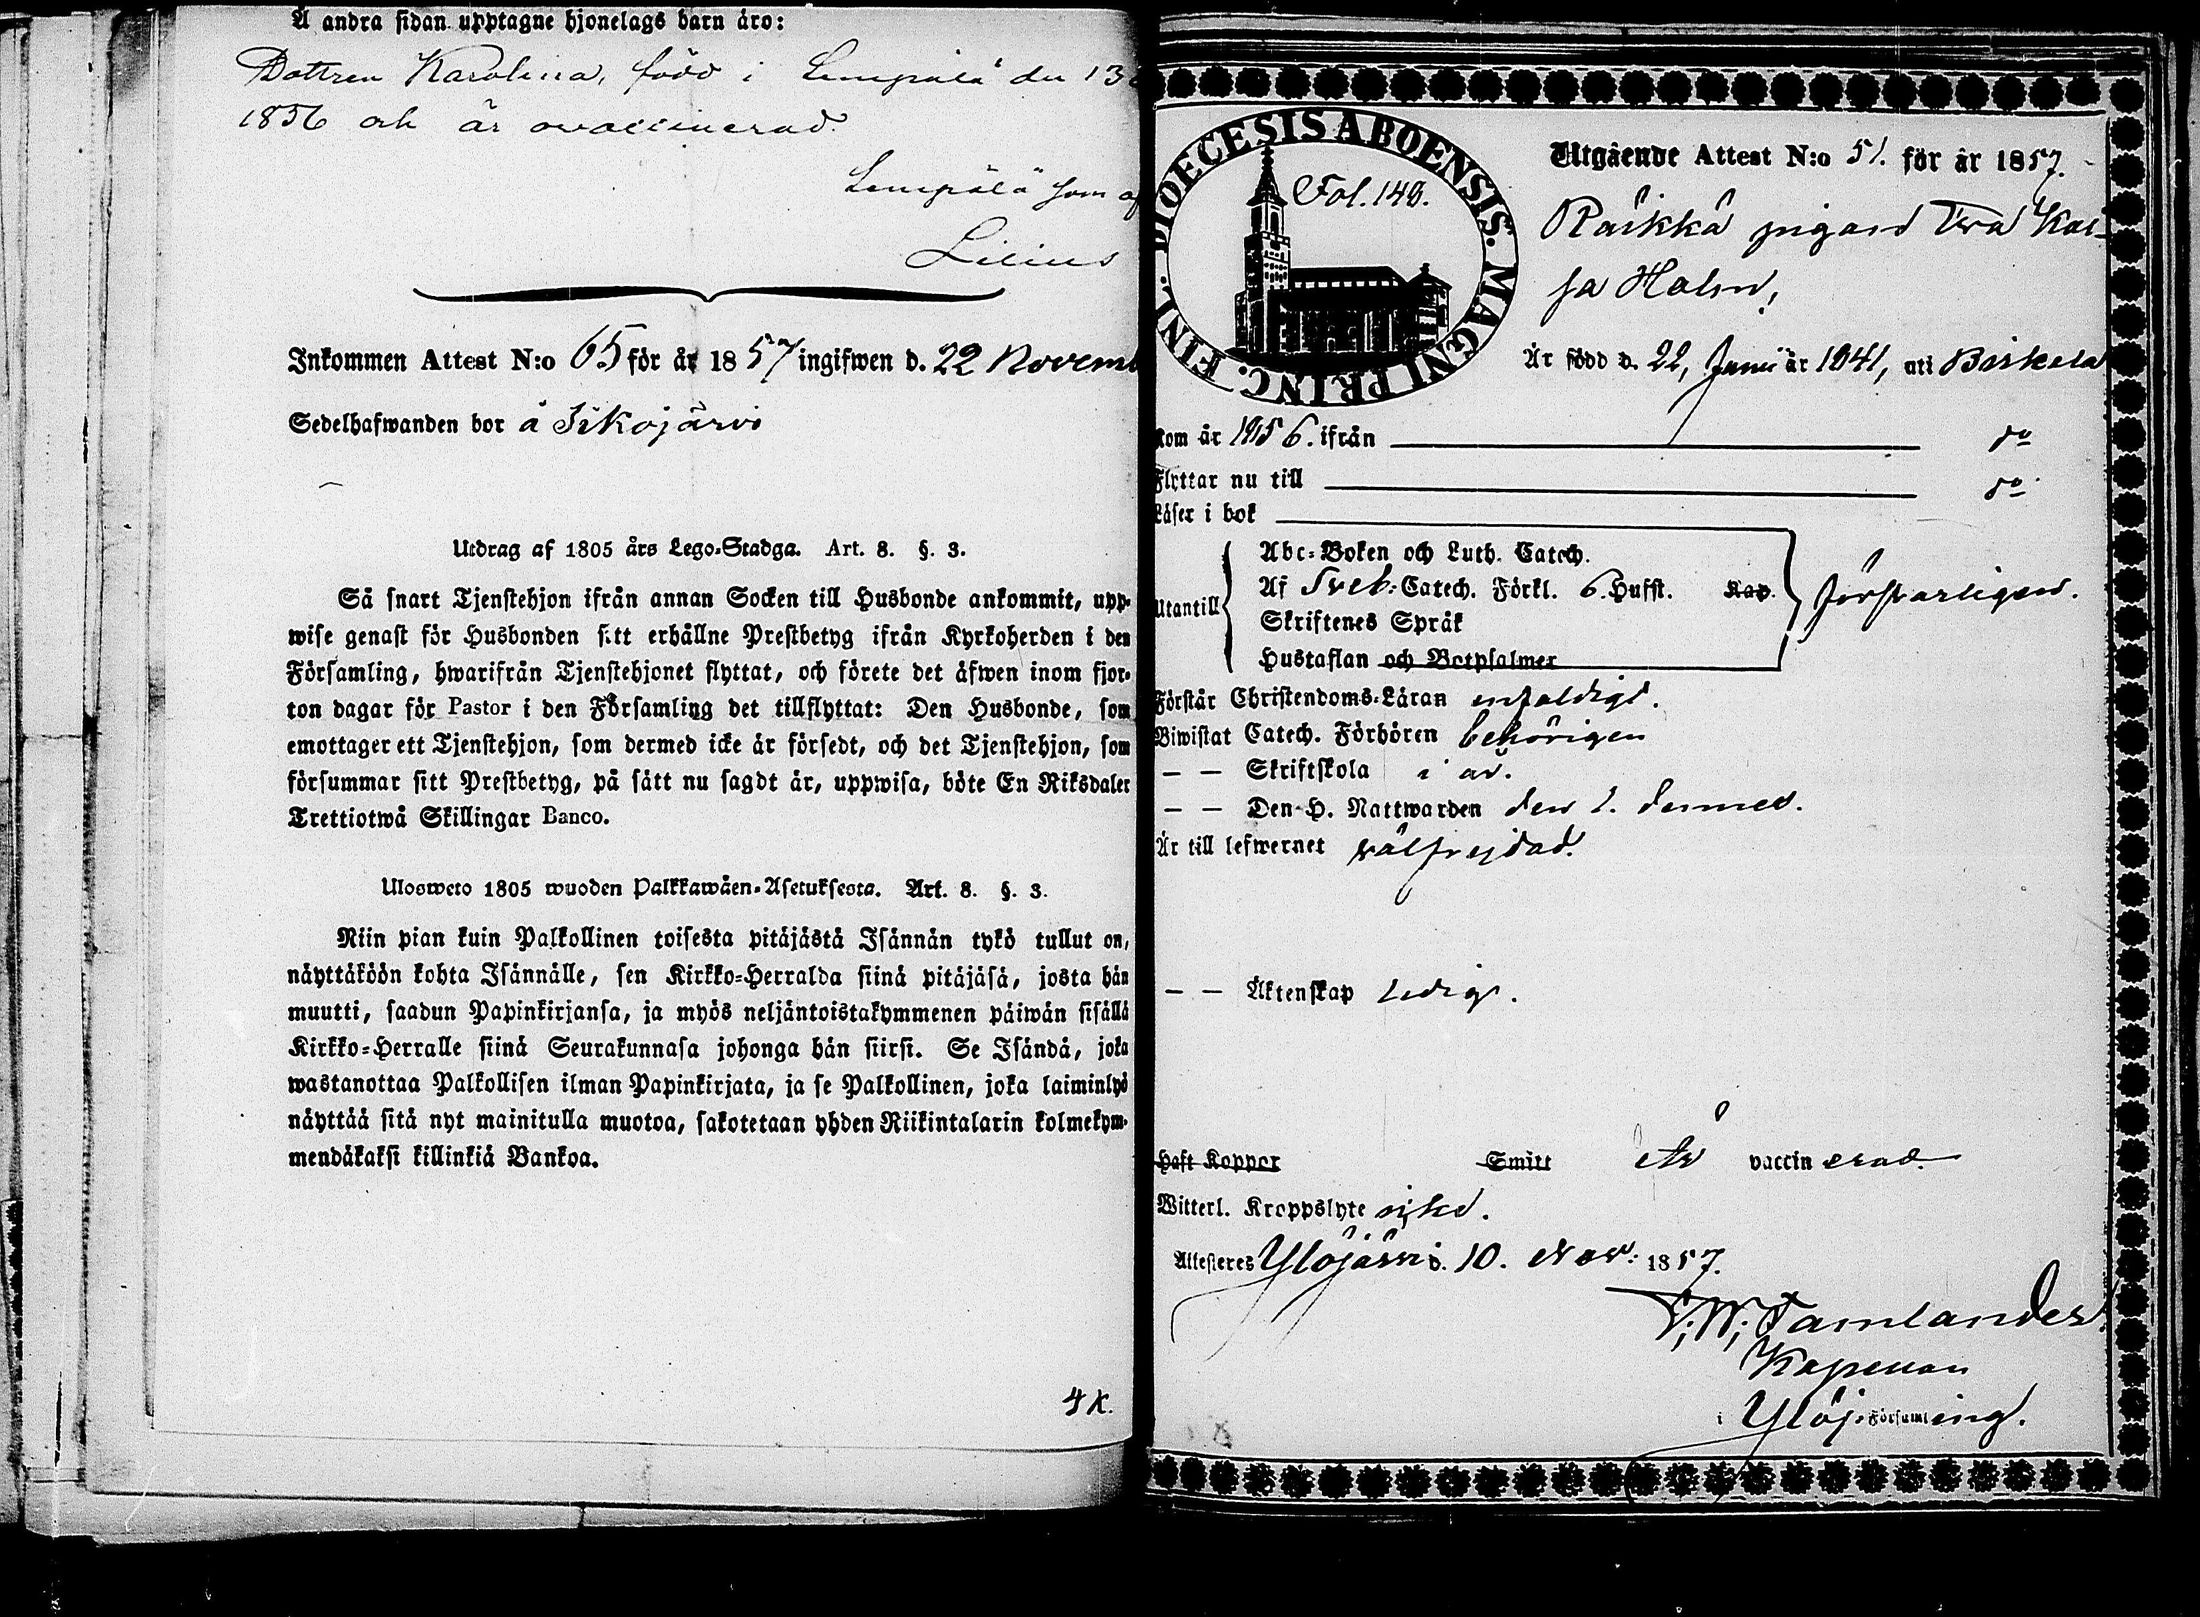 Å andra sidan upptagne hjonelags barn äro:
Dottren Karolina, född i Lempälä den 13
1856 och är ovaccinerad.
Lempälä som
Lilius
Inkommen Attest N:o 65 för år 1857 ingifwen d. 22 Novemb
Sedelhafwanden bor å Sikojärvi
Utdrag af 1805 års Lego-Stadga. Art. 8. §. 3.
Så snart Tjenstehjon ifrån annan Socken till Husbonde ankommit, upp-
wise genast för Husbonden sitt erhållne Prestbetyg ifrån Kyrkoherden i den
Församling, hwarifrån Tjenstehjonet flyttat, och förete det äfwen inom fjor-
ton dagar för Pastor i den Församling det tillflyttat: Den Husbonde, som
emottager ett Tjenstehjon, som dermed icke är försedt, och det Tjenstehjon, som
försummar sitt Prestbetyg, på sätt nu sagdt är, uppwisa, böte En Riksdaler
Trettiotwå Skillingar Banco.
Ulosweto 1805 wuoden Palkkawäen-Asetuksesta. Art. 8. §. 3.
Niin pian kuin Palkollinen toisesta pitäjästä Isännän tykö tullut on,
näyttäköön kohta Isännälle, sen Kirkko-Herralda siinä pitäjäsä, josta hän
muutti, saadun Papinkirjansa, ja myös neljäntoistakymmenen päiwän sisällä
Kirkko-Herralle siinä Seurakunnasa johonga hän siirsi. Se Isändä, joka
wastanottaa Palkollisen ilman Papinkirjata, ja se Palkollinen, joka laiminlyö
näyttää sitä nyt mainitulla muotoa, sakotetaan yhden Riikintalarin kolmekym-
mendäkaksi killinkiä Bankoa.
4 K.
FINL. DIOECESIS ABOENSIS. MAGNI PRINC.
Fol. 140.
Utgående Attest N:o 51. för år 1857.
Räikkä pigan Eva Kai-
sa Holm,
Är född d. 22, Januii år 1841, uti Birkala
Kom år 1856. ifrån do
Flyttar nu till do
Läser i bok
Utantill
Abc-Boken och Luth. Catech.
Af Sveb. Catech. Förkl. 6. Hufst. Kap.
Skriftenes Språk
Hustaflan och Botpsalmer
försvarligen.
Förstår Christendoms-Läran enfaldigt.
Biwistat Catech. Förhören behörigen
— — Skriftskola i år.
— — Den H. Nattwarden den 1. dennes.
Är till lefwernet välfrejdad.
— — Äktenskap ledig.
Haft Koppor Smitt Är vaccinerad.
Witterl. Kroppslyte icke.
Attesteres Ylöjärvi d. 10. Nov: 1857.
V; W; Tamlander
Kapellan
i Ylöj. Församling.